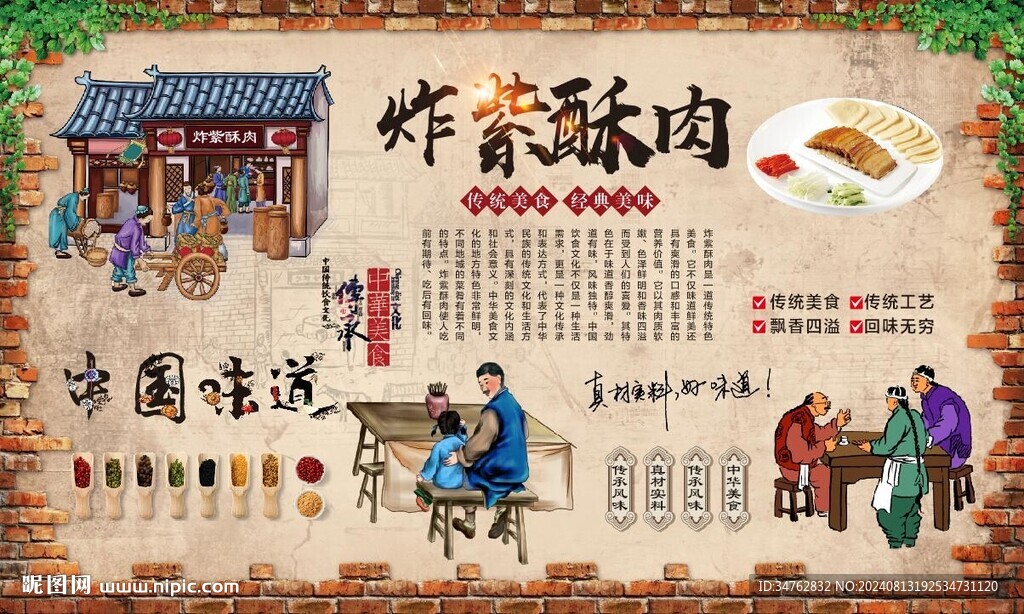 炸紫酥肉
炸紫酥肉
传统美食 经典美味
炸紫酥肉是一道传统特色
美食。它不仅味道鲜美还
具有爽滑的口感和丰富的
营养价值。它以其肉质软
嫩、色泽鲜明和香味四溢
而受到人们的喜爱。其特
色在于味道香醇爽滑,劲
道有味,风味独特。中国
饮食文化不仅是一种生活
需求,更是一种文化传承
和表达方式,代表了中华
民族的传统文化和生活方
式,具有深刻的文化内涵
和社会意义。中华美食文
化的地方特色非常鲜明,
不同地域的菜肴有着不同
的特点。炸紫酥肉使人吃
前有期待、吃后有回味。
传统美食 传统工艺
飘香四溢 回味无穷
中国传统饮食文化
傳承
中華美食
文化
中国味道
真材实料,好味道!
传承风味
真材实料
传承风味
中华美食
昵图网 www.nipic.com
ID:34762832 NO:20240813192534731120